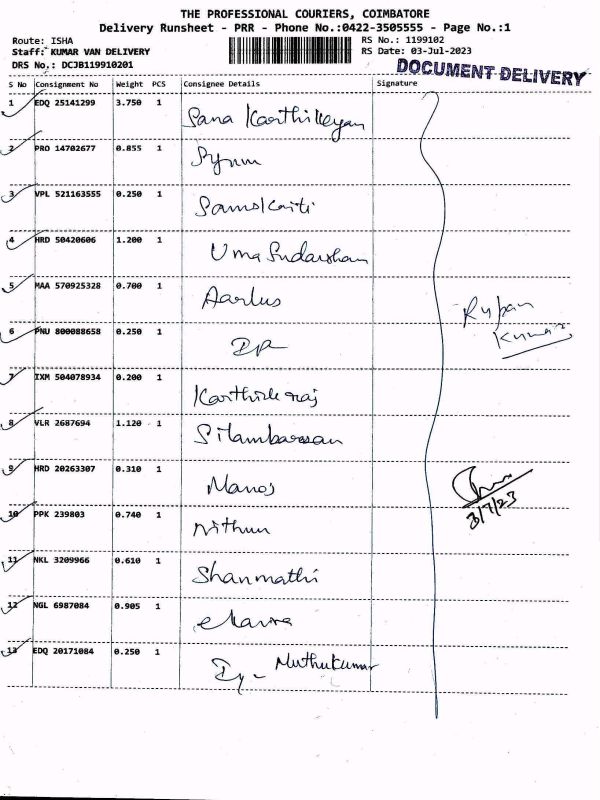 THE PROFESSIONAL COURIERS, COIMBATORE
Delivery Runsheet - PRR - Phone No.:0422-3505555 - Page No.:1
Route: ISHA
RS No.: 1199102
Staff: KUMAR VAN DELIVERY
RS Date: 03-Jul-2023
DRS No.: DCJB119910201
DOCUMENT DELIVERY
S No Consignment No Weight PCS Consignee Details Signature
1 EDQ 25141299 3.750 1 Sana Karthikeyan
2 PRO 14702677 0.855 1
3 VPL 521163555 0.250 1
4 HRD 50420606 1.200 1 Uma Sudarshan
5 MAA 570925328 0.700 1
6 PNU 800088658 0.250 1
Rupan
Kumar
7 IXM 504078934 0.200 1
8 VLR 2687694 1.120 1
9 HRD 20263307 0.310 1 Manoj
3/7/23
10 PPK 239803 0.740 1 Nithun
11 NKL 3209966 0.610 1 Shanmathi
12 NGL 6987084 0.905 1
13 EDQ 20171084 0.250 1 Muthukumar